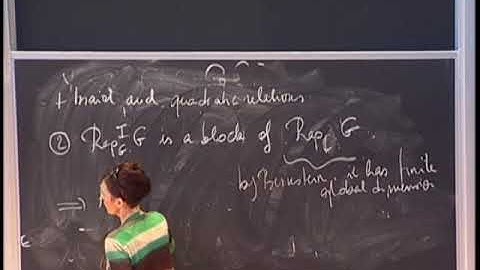 + braid and quadratic relations
② Rep_C^I G is a block of Rep_C G.
by Bernstein it has finite
global dimension
⇒